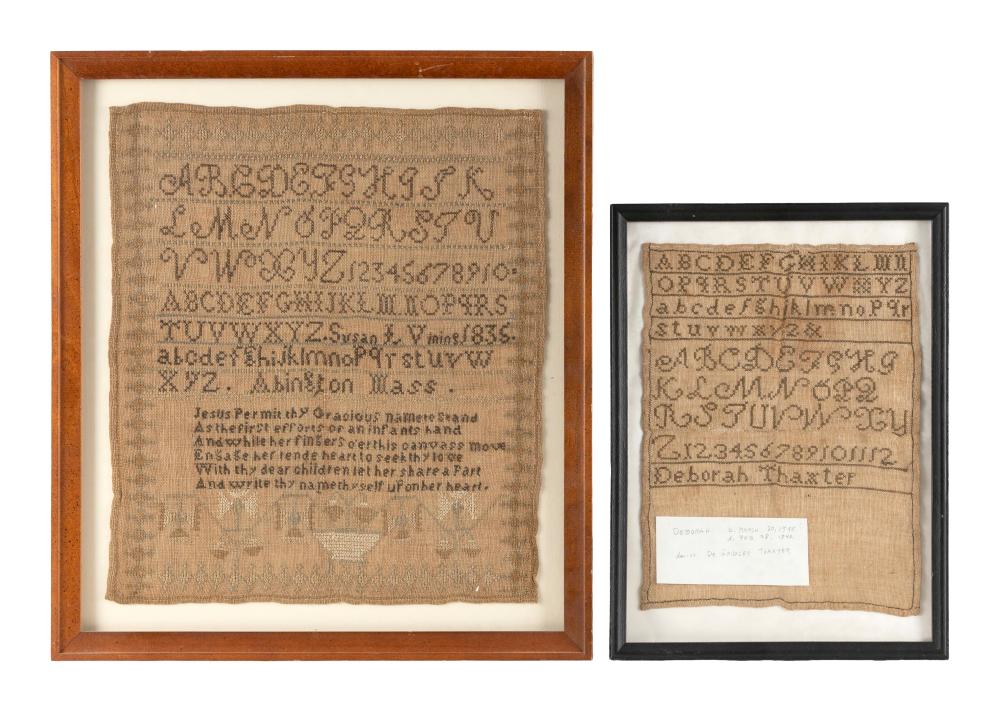 ABCDEFGHIJK
LMNOPQRSTUV
VWXYZ12345678910
ABCDEFGHIJKLMNOPqRS
TUVWXYZ. Susan L Vining 1835.
abcdefghijklmnoPqrstuvw
XYZ. Abington Mass.
Jesus Permit thy Gracious name to Stand
As the first efforts or an infants hand
And while her fingers o'er this canvass move
Engage her tende heart to seek thy love
With thy dear children let her share a Part
And write thy name thyself upon her heart.
ABCDEFGHIKLMN
OPqRSTUVWXYZ
abcdefghijklmnoPqr
stuvwxyz&
ABCDEFGHI
KLMNOPQ
RSTUVWXY
Z123456789101112
Deborah Thaxter
DEBORAH b. MARCH 20,
d. FEB. 28,
DR GRIDLEY THAXTER